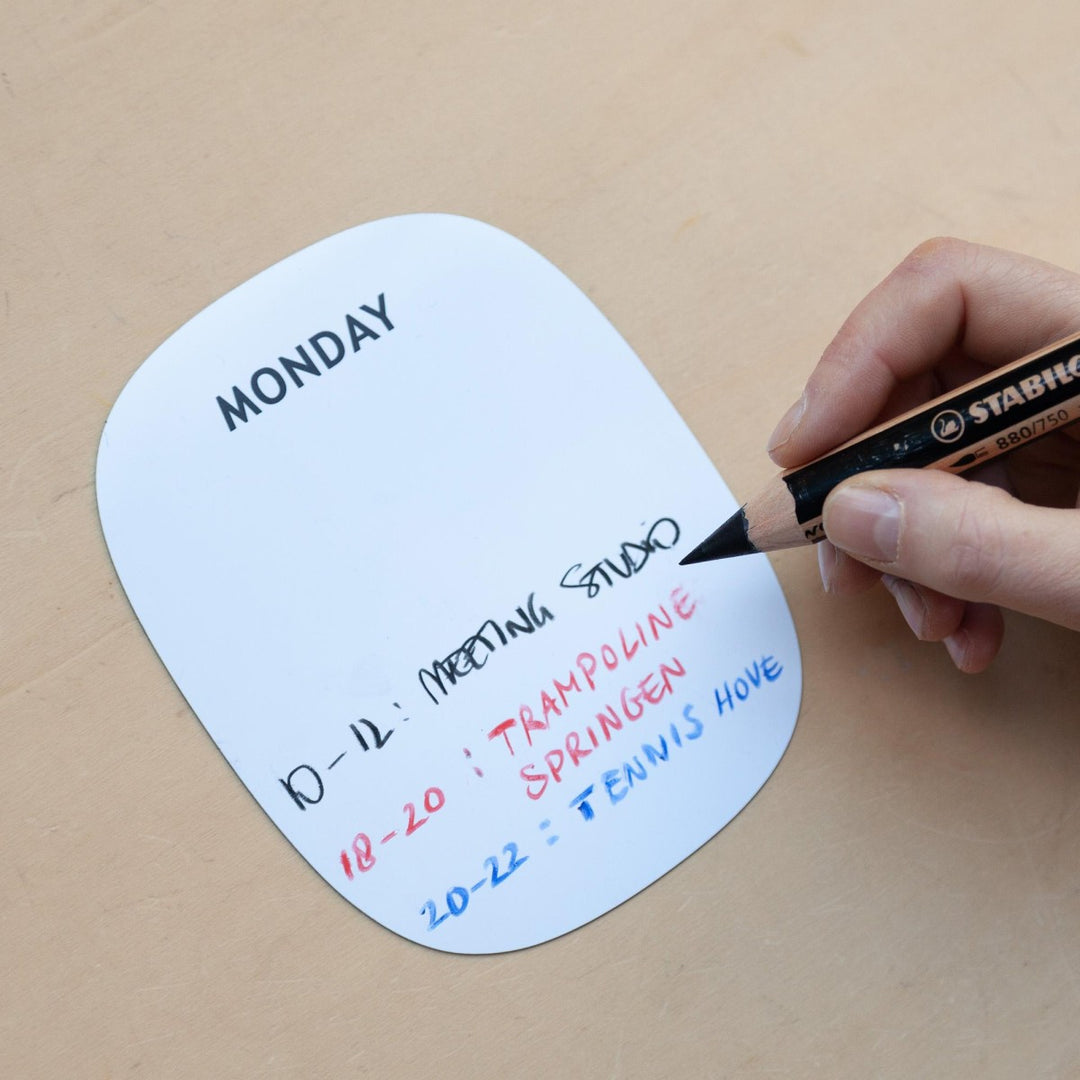 MONDAY
10-12: MEETING STUDIO
18-20: TRAMPOLINE
SPRINGEN
20-22: TENNIS HOVE
STABILO
880/750